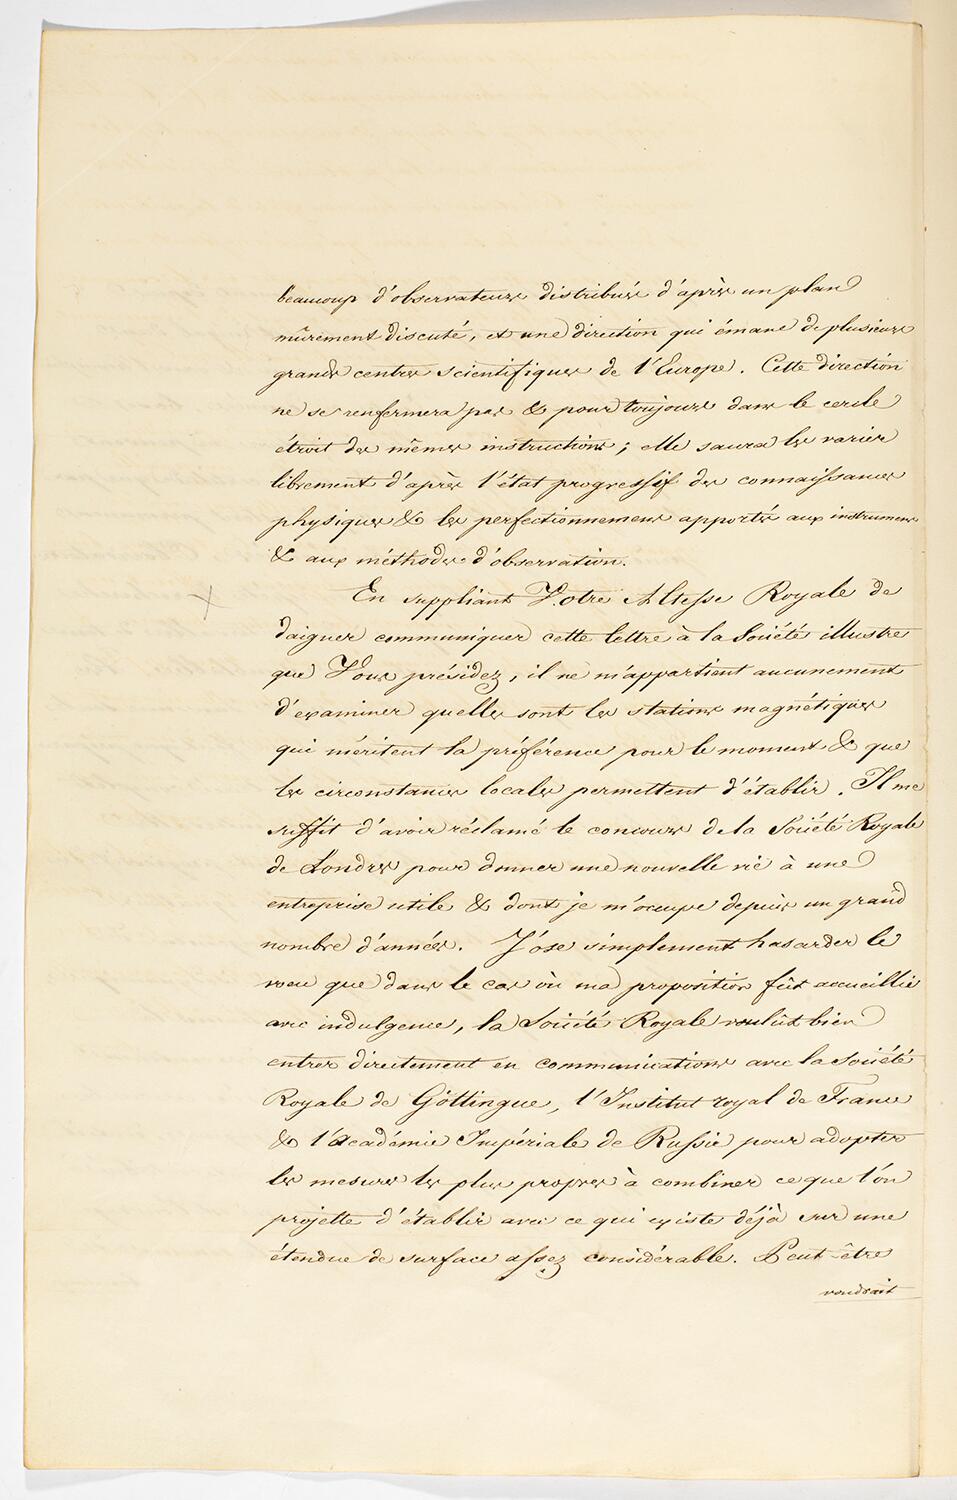 beaucoup d'observateurs distribués d'après un plan
mûrement discuté, et une direction qui émane de plusieurs
grands centres scientifiques de l'Europe. Cette direction
ne se renfermera pas & pour toujours dans le cercle
étroit des mêmes instructions; elle saura les varier
librement d'après l'état progressif des connaissances
physiques & les perfectionnemens apportés aux instrumens
& aux méthodes d'observation.
En suppliant Votre Altesse Royale de
daigner communiquer cette lettre à la Société illustre
que Vous présidez, il ne m'appartient aucunement
d'examiner quelles sont les stations magnétiques
qui méritent la préférence pour le moment & que
les circonstances locales permettent d'établir. Il me
suffit d'avoir réclamé le concours de la Société Royale
de Londres pour donner une nouvelle vie à une
entreprise utile & dont je m'occupe depuis un grand
nombre d'années. J'ose simplement hasarder le
voeu que dans le cas où ma proposition fût accueillie
avec indulgence, la Société Royale voulût bien
entrer directement en communications avec la Société
Royale de Göttingue, l'Institut royal de France
& l'Académie Impériale de Russie pour adopter
les mesures les plus propres à combiner ce que l'on
projette d'établir avec ce qui existe déjà sur une
étendue de surface assez considérable. Peut-être
voudrait